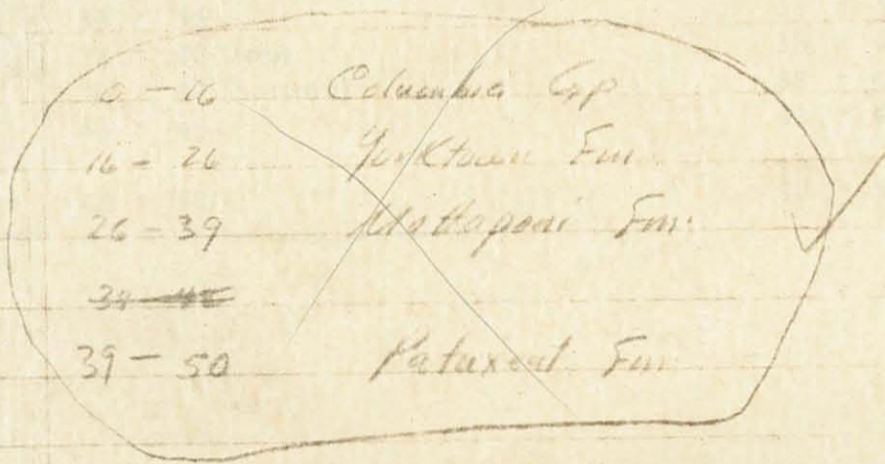 0 - 16 Columbia Gp
16 - 26 Yorktown Fm
26 - 39 Mattaponi Fm.
39 - 50 Patuxent Fm